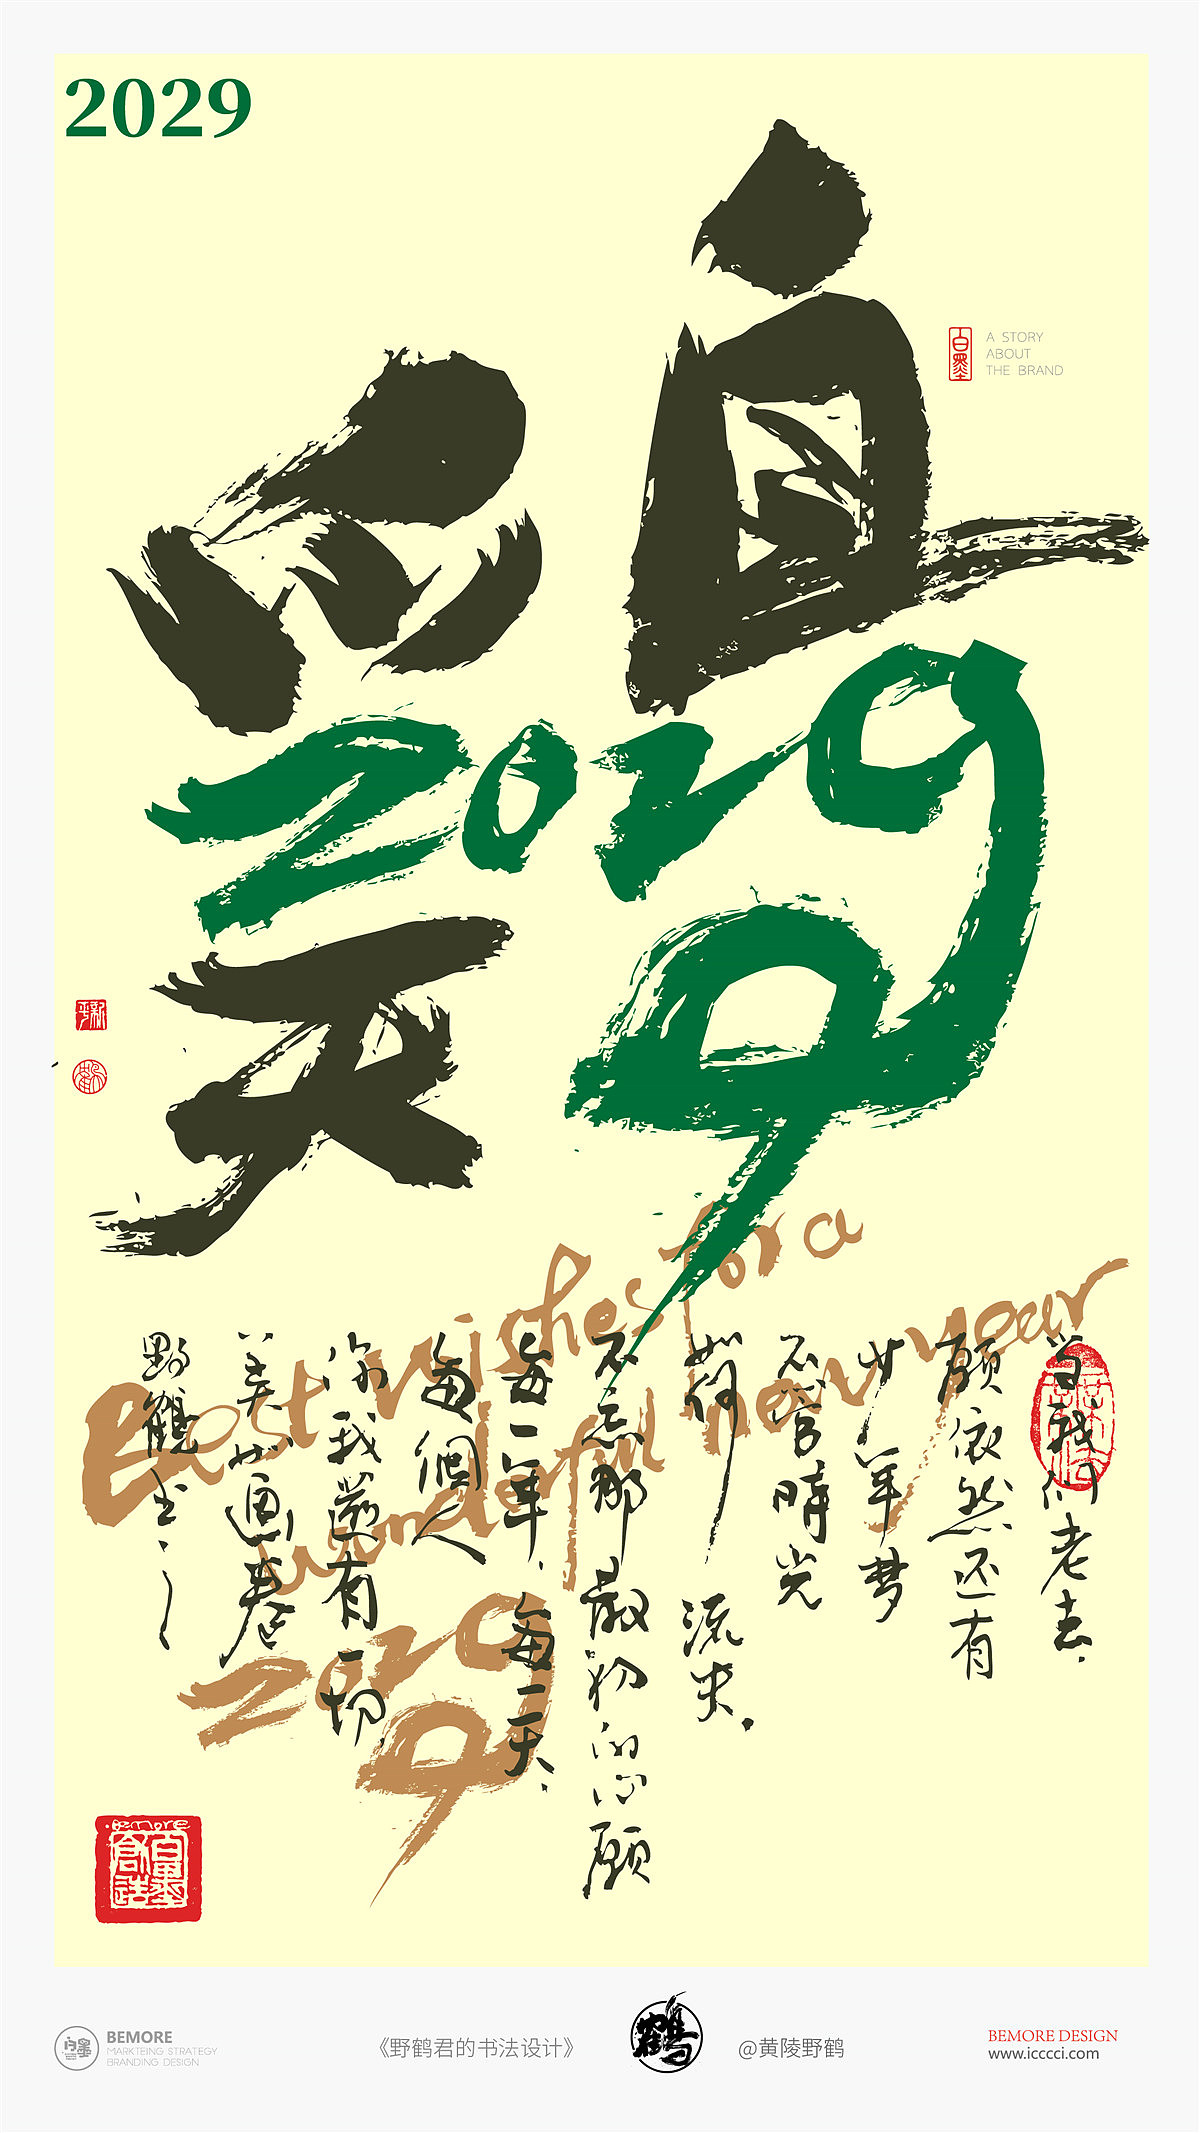 2029
笑向
2029
百墨
A STORY
ABOUT
THE BRAND
Best wishes for a
wonderful new year
2029
当我们老去、
愿依然还有
少年梦
不管時光
如何流失。
不忘那最初的心愿
每一年、每一天、
每個人
你我還有一切、
美如画卷
野鶴书
Bemore
百墨
創造
BEMORE
MARKTEING STRATEGY
BRANDING DESIGN
《野鹤君的书法设计》
鶴
@黄陵野鹤
BEMORE DESIGN
www.icccci.com